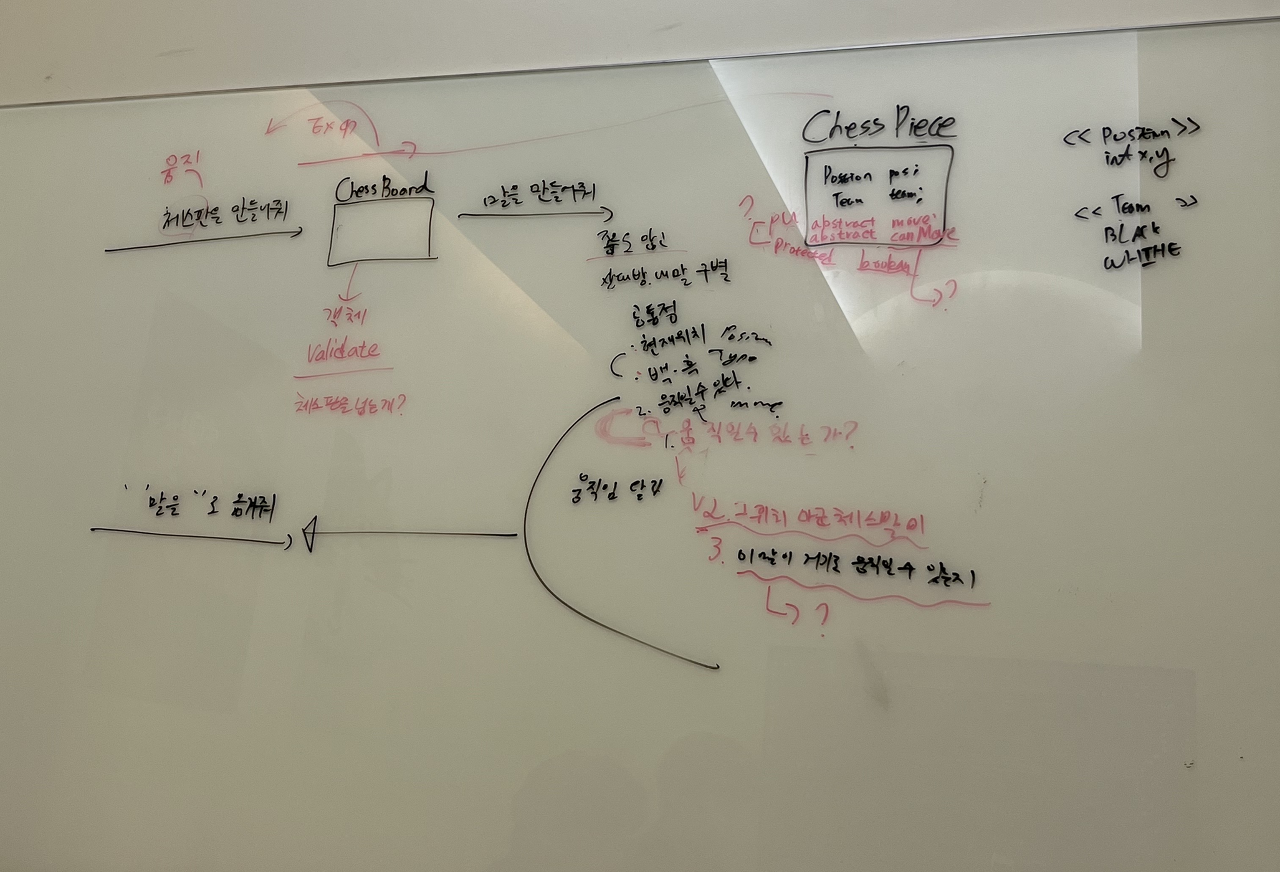 움직
체스판을 만들어줘
ChessBoard
말을 만들어줘
객체
Validate
체스판을 넘는게?
상대방, 내말 구별
공통점
: 현재위치
: 백. 흑 Type
2. 움직일수 있다.
move
1. 움직일수 있는가?
움직임 달라
2. 그위치 아군 체스말이
3. 이말이 거기로 움직일 수 있는지
?
" "말을 " "로 옮겨줘
Chess Piece
Possion pos;
Team team;
? pu abstract move;
abstract canMove
protected boolean
?
<< Position >>
int x, y
<< Team >>
BLACK
WHITHE